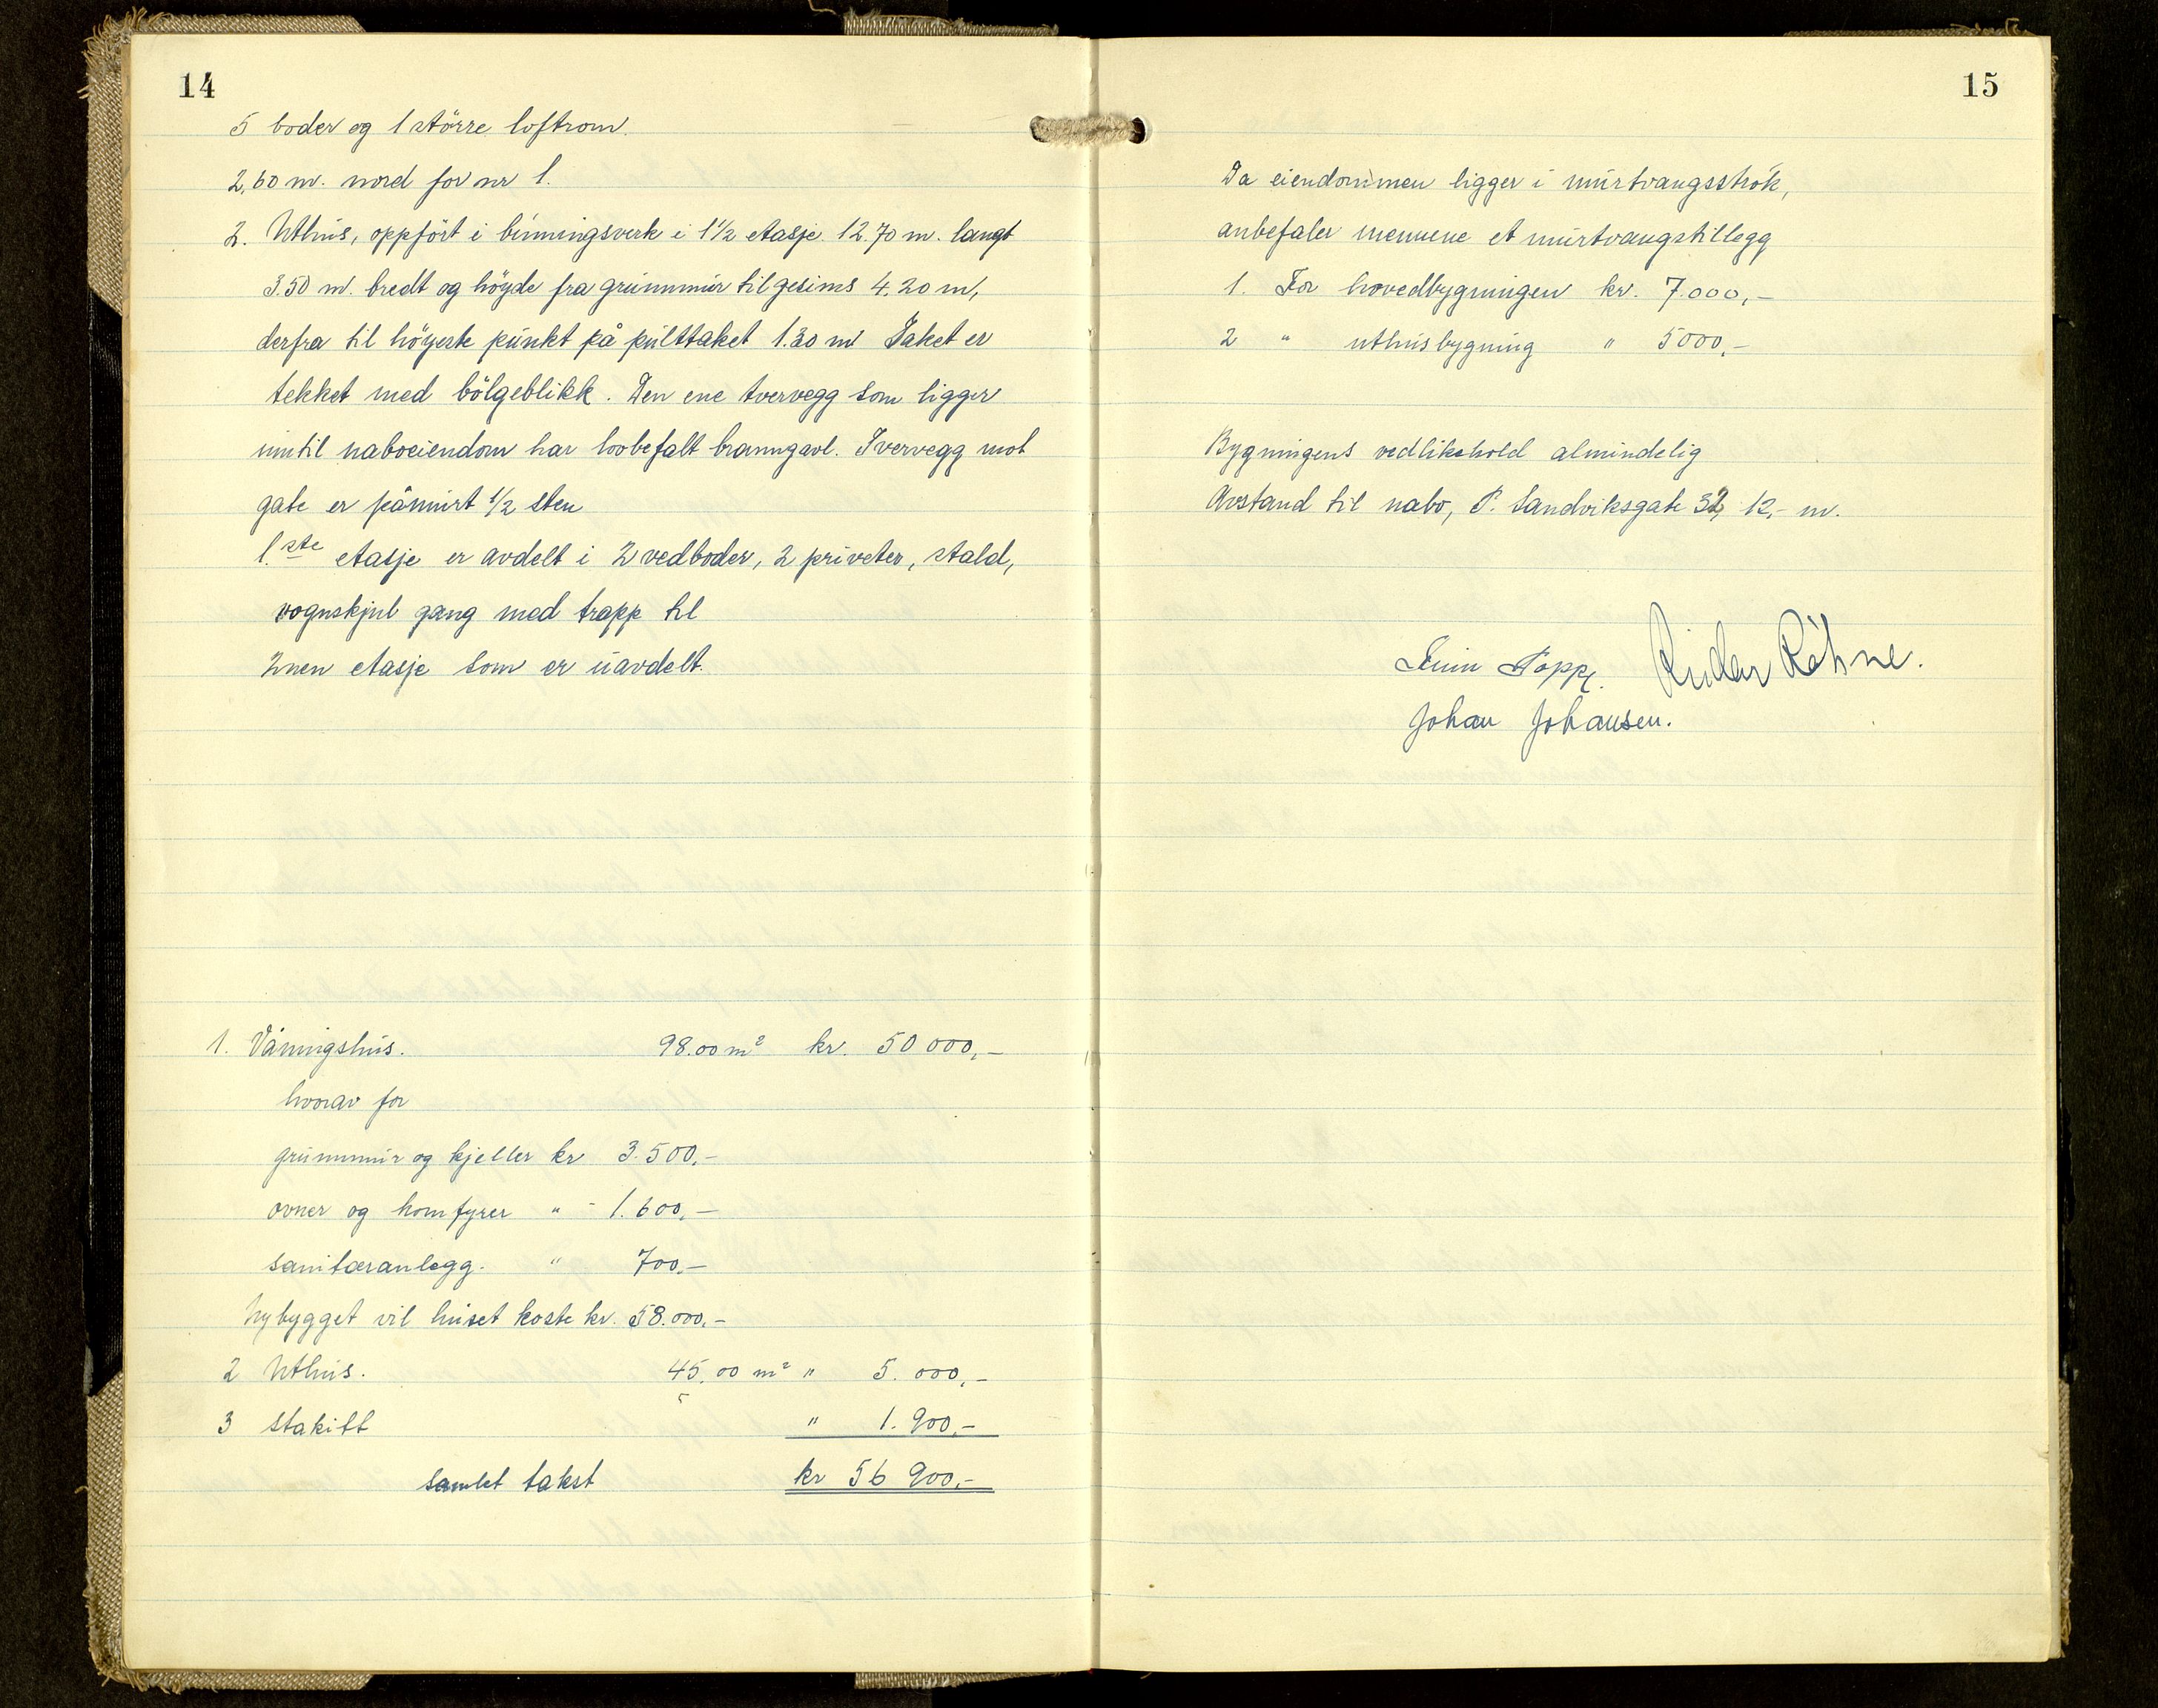 14
5 boder og 1 större loftrom.
2,60 m. nord for nr 1.
2. Uthus, oppfört i binningsverk i 1 1/2 etasje 12.70 m. langt
3.50 m. bredt og höyde fra grunnmur til gesims 4.20 m,
derfra til höyeste punkt på pulttaket 1.30 m Taket er
tekket med bölgeblikk. Den ene tvervegg som ligger
inntil naboeiendom har lovbefalt branngavl. Tvervegg mot
gate er påmurt 1/2 sten
1.ste etasje er avdelt i 2 vedboder, 2 priveter, stald,
vognskjul gang med trapp til
2nen etasje som er uavdelt.
1. Våningshus. 98.00 m² kr. 50 000,-
hvorav for
grunnmur og kjeller kr 3.500,-
ovner og komfyrer " - 1.600,-
sanitæranlegg. " 700.-
Nybygget vil huset koste kr. 58.000.-
2 Uthus. 45,00 m² " 5.000,-
3 Stakitt " 1.900,-
Samlet takst kr 56 900,-
15
Da eiendommen ligger i murtvangsströk,
anbefaler mennene et murtvangstillegg
1. For hovedbygningen kr. 7.000,-
2 " uthusbygning " 5000,-
Bygningens vedlikehold almindelig
Avstand til nabo, P. Sandviksgate 32, 12,- m.
Popp. Reidar Röhne.
Johan Johansen.